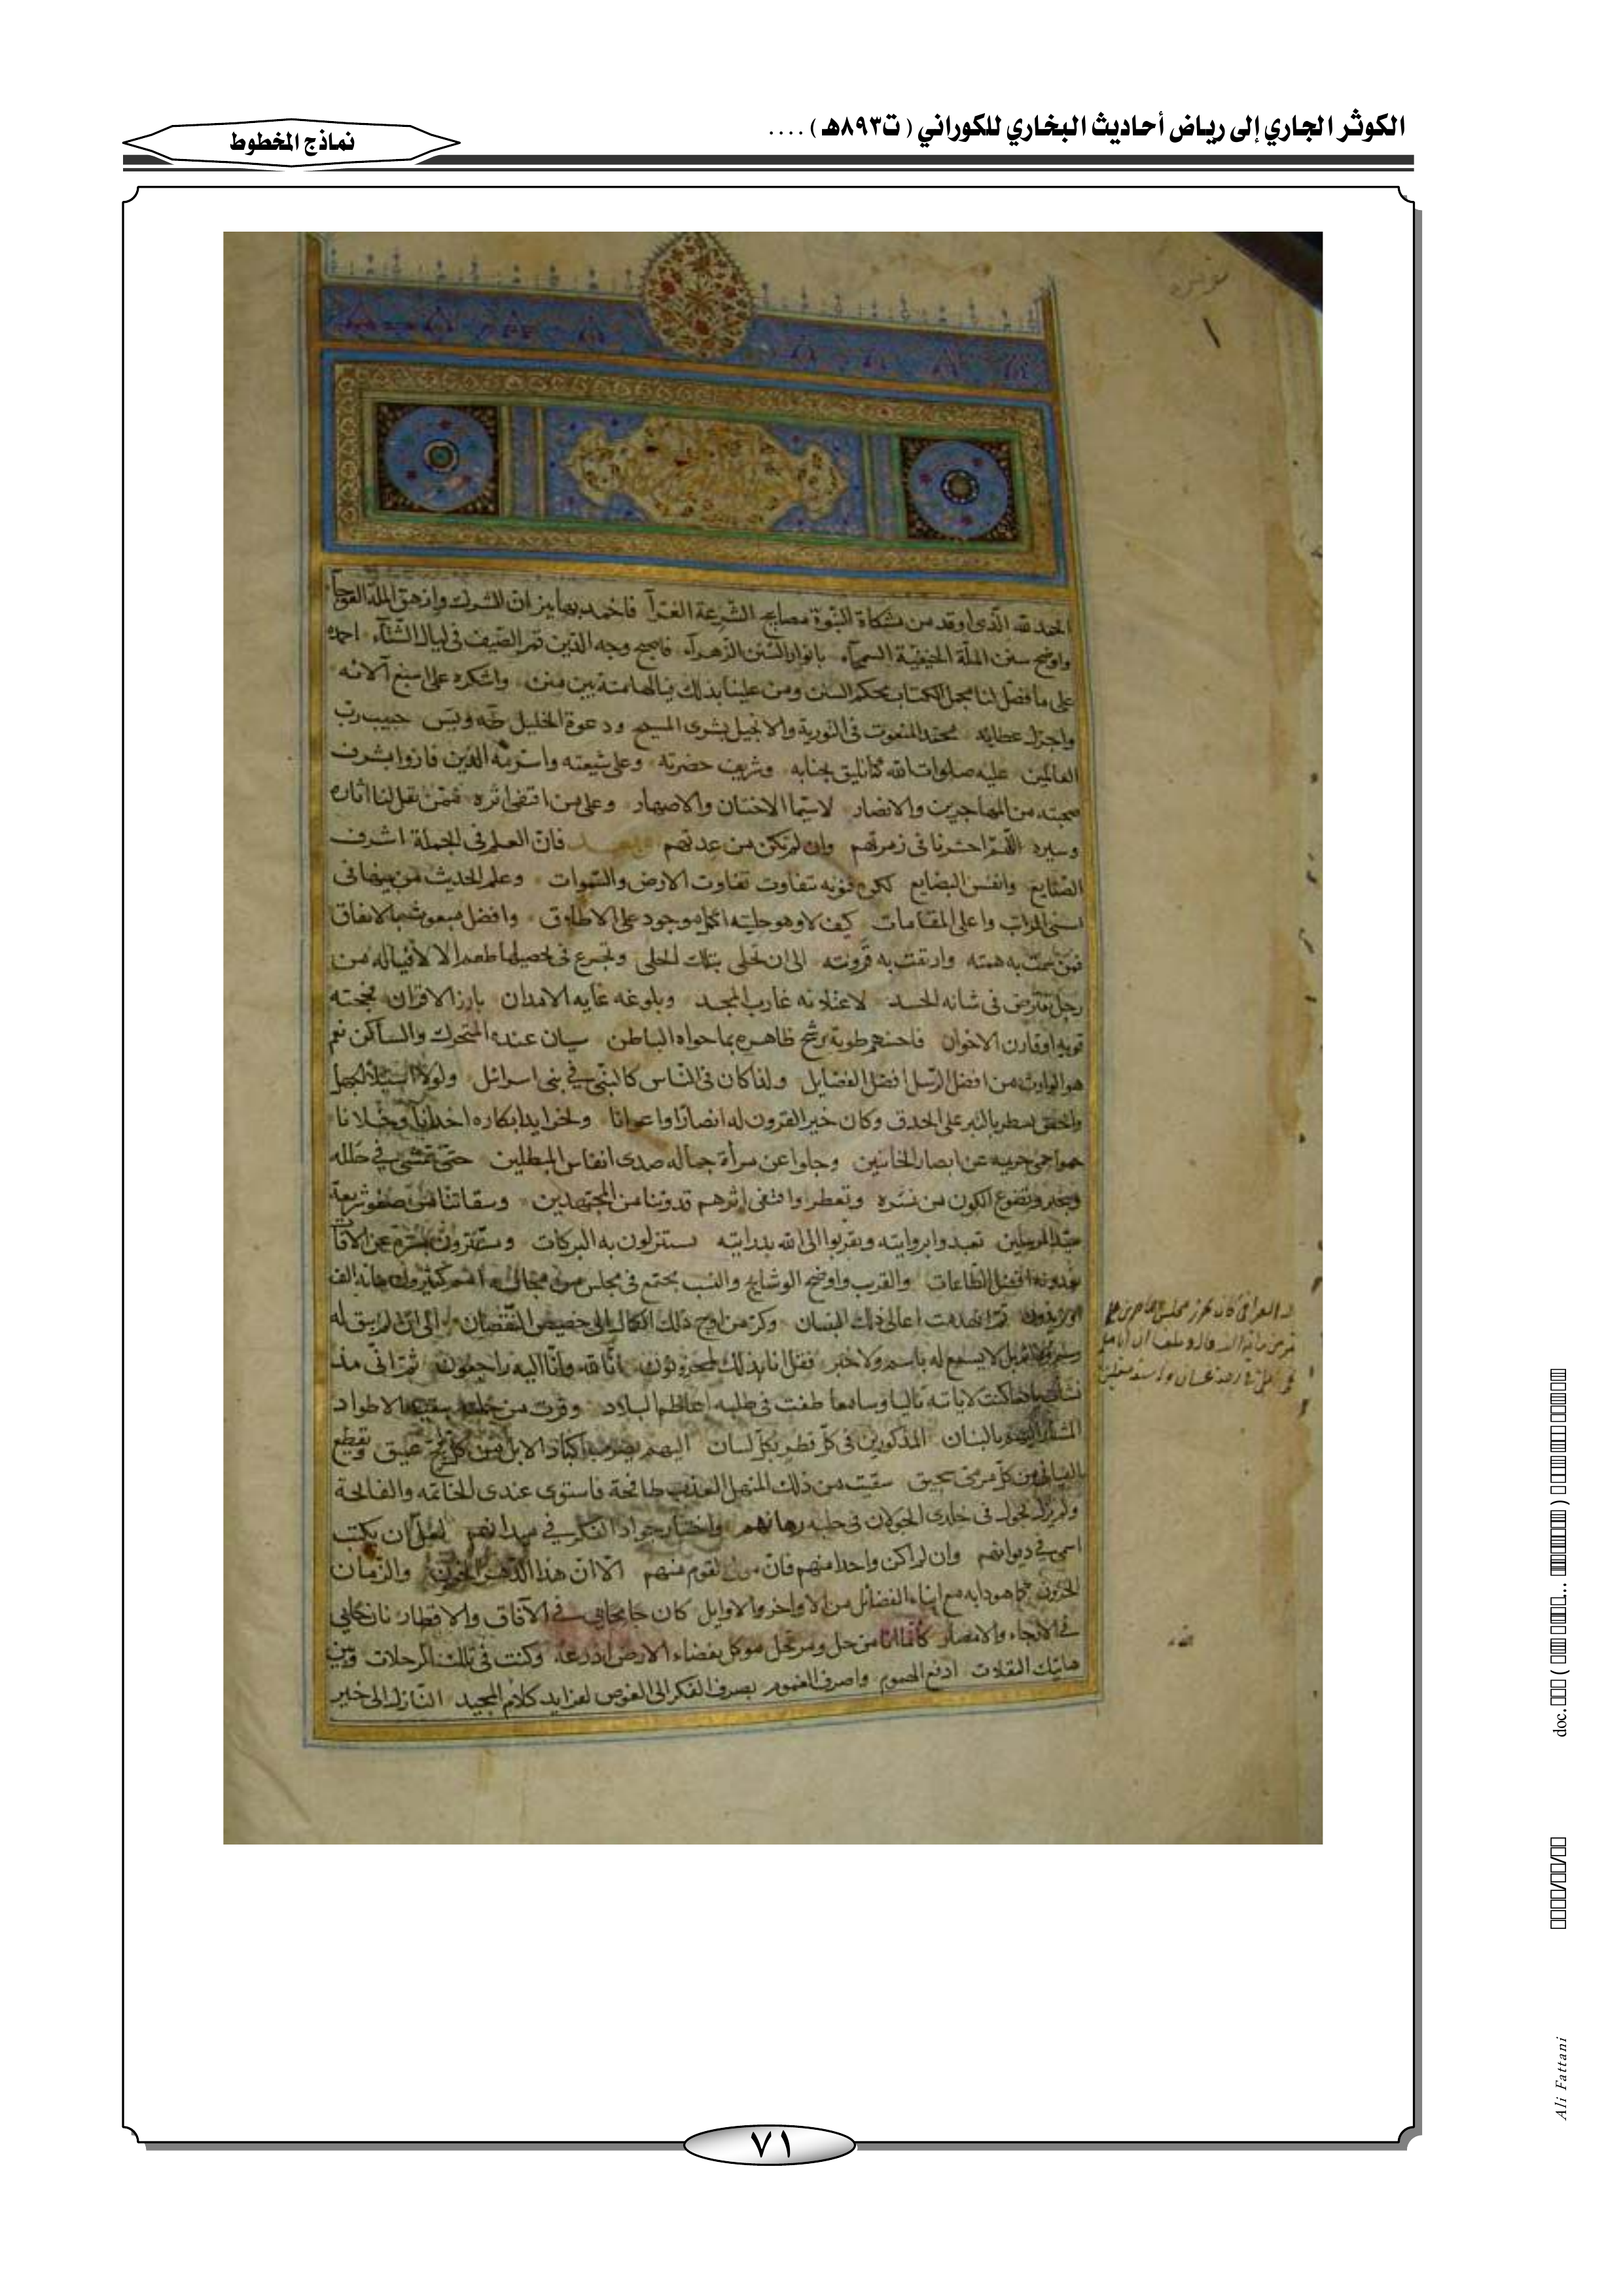 الكوثر الجاري إلى رياض أحاديث البخاري للكوراني ( ت٨٩٣هـ ) ....
نماذج المخطوط
١
الحمد لله الذى اوقد من مشكاة النبوة مصابيح الشريعة الغرآ فاخمد بها نيران الشرك وازهق الملة العوجآ
واوضح سنن الملة الحنيفية السمحآء بانوار السنن الزهرآء فاصبح وجه الدين قمر الصيف فى ليال الشتآء احمده
على ما فصل لنا مجمل الكتاب بمحكم السنن ومن علينا بذلك من منن واشكره على اسبغ آلائه
واجزل عطاياه محمد المنعوت فى التورية والانجيل بشرى المسيح ودعوة الخليل طه ويس حبيب رب
العالمين عليه صلوات الله كما تليق بجنابه وشريف حضرته وعلى شيعته واسرته الذين فازوا بشرف
صحبته من المهاجرين والانصار لاسيما الاختان والاصهار وعلى من اقتفى اثره ممن نقل لنا اثاره
وسيره اللهم احشرنا فى زمرتهم وان لم نكن من عدتهم فان العلم فى الجملة اشرف
الصنايع وانفس البضايع لكن فنونه تتفاوت تفاوت الارض والسموات وعلم الحديث من بينها فى
اسنى المراتب واعلى المقامات كيف لا وهو حلية اكمل موجود على الاطلاق وافضل مبعوث بالاتفاق
فمن سمت به همته وارتقت به قرونته الى ان تحلى بتلك الحلى وتجرع فى تحصيلها طعم الالا فياله من
رجل تقترض فى شانه الحسد لاعتلائه غارب المجد وبلوغه غاية الامدان بارز الاقران فحجته
قوية او قارن الاخوان فاحسنهم طوية يرشح ظاهره بما حواه الباطن سيان عنده المتحرك والساكن نعم
هو الوارث من افضل الرسل افضل الفضايل ولذا كان فى الناس كالنبى فى بنى اسرائل ولولا
يسطر بالتبر على الحدق وكان خير القرون له انصارا واعوانا ولخرايد ابكاره اخدانا وخلانا
حموا حمى حريمه عن ابصار الخائنين وجلوا عن مرأة جماله صدى انفاس المبطلين حتى تمشى فى حلله
وتضوع الكون من نشره وتعطر واقتفى اثرهم قدوتنا من المجتهدين وسقاتنا من صفو شريعة
سيد المرسلين تعبدوا بروايته وتقربوا الى الله بدرايته يستنزلون به البركات
يعدونه افضل الطاعات والقرب واوضح الوشايج والنسب يجتمع فى مجلس من مجالسهم مائة الف
او يزيدون ثم انهدمت اعالى ذلك البنيان وكر من اوج ذلك الكمال الى حضيض النقصان الى ان لم يبق له
رسم ولا اثر بل لا يسمع له باسم ولا خبر فقل انا بذلك لمحزونون انا لله وانا اليه راجعون ثم انى منذ
نشأت كنت لاياته تاليا وسامعا طفت فى طلبه اعاظم البلاد وقرت من
المشار اليهم بالبنان المذكورين فى كل قطر بكل لسان اليهم يضرب اكباد الابل من كل فج عميق وتقطع
الفيافى من كل مرمى سحيق سقيت من ذلك المنهل العذب طافحة فاستوى عندى الخاتمة والفاتحة
ولم يزل يجول فى خلدى الجولان فى حلبة رهانهم واختبار جواد الفكر فى ميدانهم لعل ان يكتب
اسمى فى ديوانهم وان لم اكن واحدا منهم فان مولى القوم منهم الا ان هذا الدهر الخؤن والزمان
الحزون كما هو دابه مع ابناء الفضائل من الاواخر والاوايل كان جانحا بى فى الآفاق والاقطار نازحا بى
فى الارجاء والامصار كانما انا من حل ومرتحل موكل بفضاء الارض اذرعه وكنت فى تلك الرحلات وبين
هاتيك النقلات ادفع الهموم واصرف الغموم بصرف الفكر الى الغوص لفرايد كلام المجيد النازل الى خير
٧١
doc.
Ali Fattani